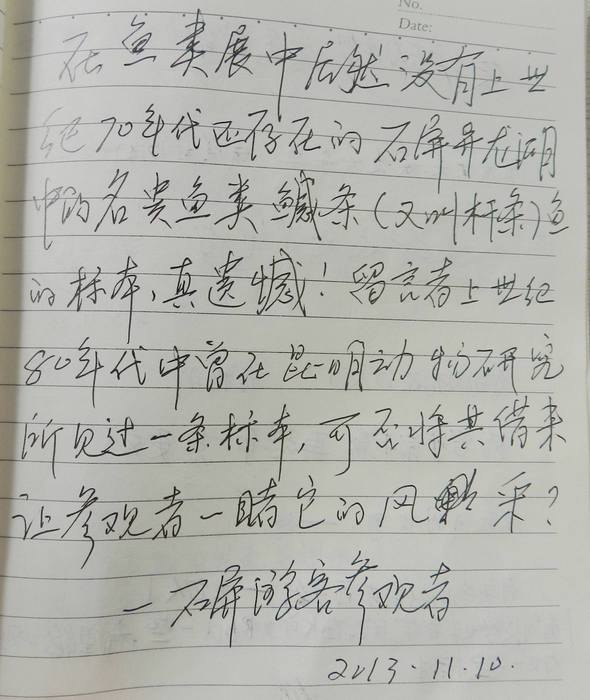 No.
Date:
在鱼类展中居然没有上世
纪70年代还存在的石屏异龙湖
中的名贵鱼类鳡条(又叫杆条)鱼
的标本,真遗憾!留言者上世纪
80年代中曾在昆明动物研究
所见过一条标本,可否将其借来
让参观者一睹它的风采?
一石屏游客参观者
2013.11.10.